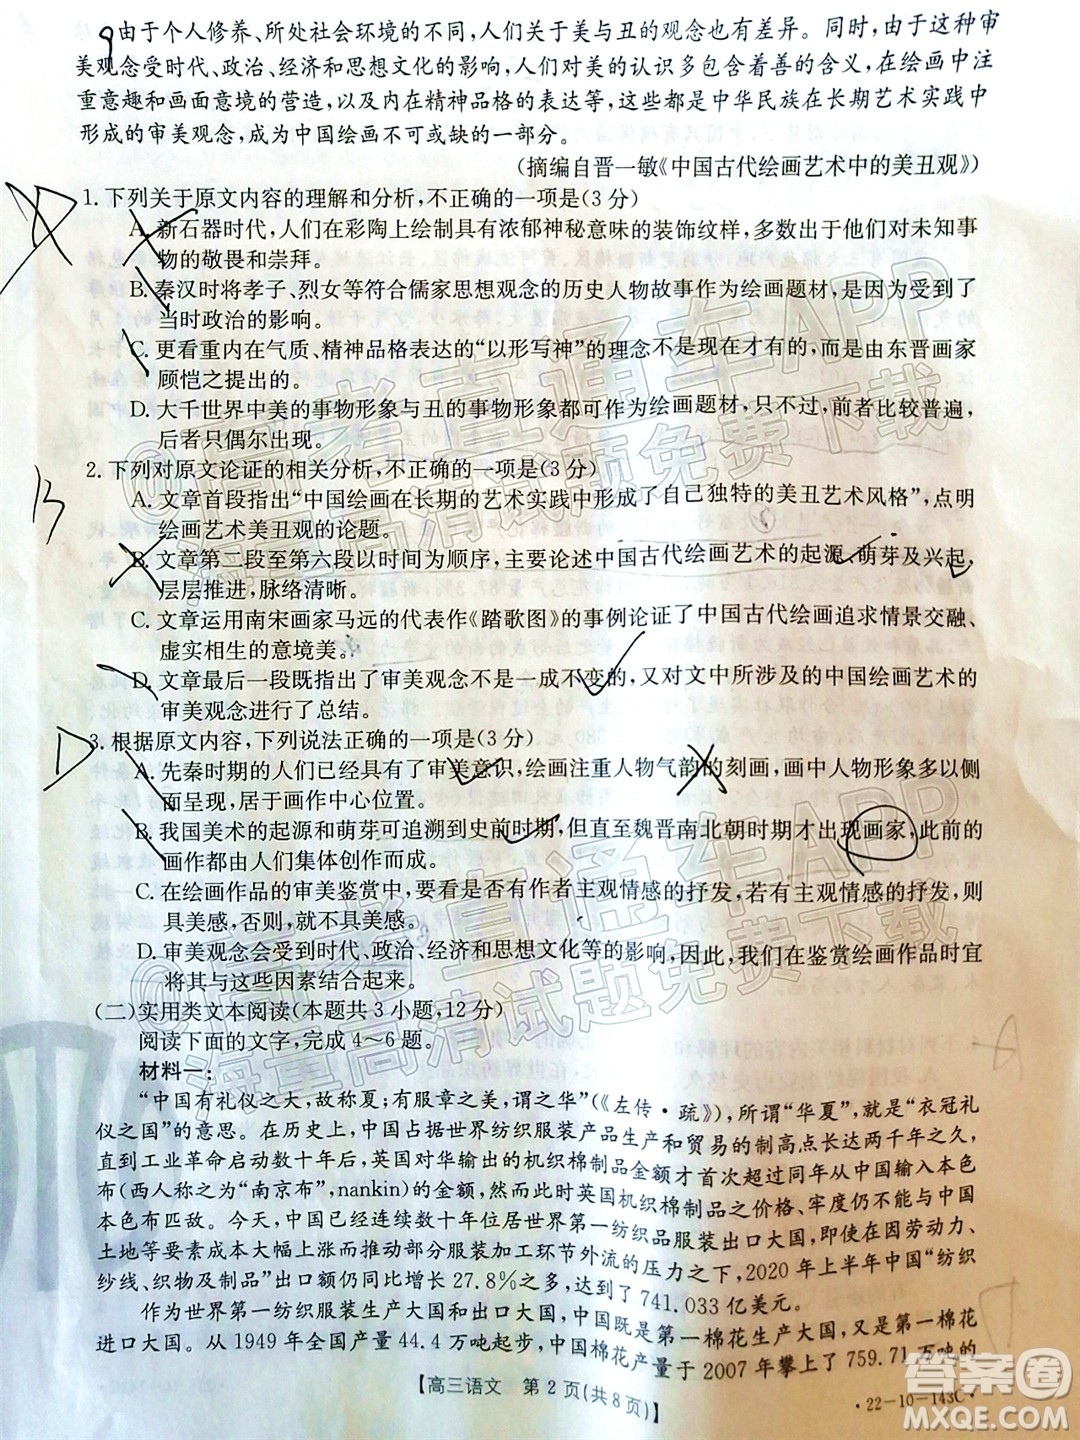 9由于个人修养、所处社会环境的不同,人们关于美与丑的观念也有差异。同时,由于这种审
美观念受时代、政治、经济和思想文化的影响,人们对美的认识多包含着善的含义,在绘画中注
重意趣和画面意境的营造,以及内在精神品格的表达等,这些都是中华民族在长期艺术实践中
形成的审美观念,成为中国绘画不可或缺的一部分。
(摘编自晋一敏《中国古代绘画艺术中的美丑观》)
1.下列关于原文内容的理解和分析,不正确的一项是(3分)
A.新石器时代,人们在彩陶上绘制具有浓郁神秘意味的装饰纹样,多数出于他们对未知事
物的敬畏和崇拜。
B.秦汉时将孝子、烈女等符合儒家思想观念的历史人物故事作为绘画题材,是因为受到了
当时政治的影响。
C.更看重内在气质、精神品格表达的“以形写神”的理念不是现在才有的,而是由东晋画家
顾恺之提出的。
D.大千世界中美的事物形象与丑的事物形象都可作为绘画题材,只不过,前者比较普遍,
后者只偶尔出现。
2.下列对原文论证的相关分析,不正确的一项是(3分)
A.文章首段指出“中国绘画在长期的艺术实践中形成了自己独特的美丑艺术风格”,点明
绘画艺术美丑观的论题。
B.文章第二段至第六段以时间为顺序,主要论述中国古代绘画艺术的起源、萌芽及兴起,
层层推进,脉络清晰。
C.文章以南宋画家马远的代表作《踏歌图》的事例论证了中国古代绘画追求情景交融、
虚实相生的意境美。
D.文章最后一段既指出了审美观念不是一成不变的,又对文中所涉及的中国绘画艺术的
审美观念进行了总结。
3.根据原文内容,下列说法正确的一项是(3分)
A.先秦时期的人们已经具有了审美意识,绘画注重人物气韵的刻画,画中人物形象多以侧
面呈现,居于画作中心位置。
B.我国美术的起源和萌芽可追溯到史前时期,但直至魏晋南北朝时期才出现画家,此前的
画作都由人们集体创作而成。
C.在绘画作品的审美鉴赏中,要看是否有作者主观情感的抒发,若有主观情感的抒发,则
具美感,否则,就不具美感。
D.审美观念会受到时代、政治、经济和思想文化等的影响,因此,我们在鉴赏绘画作品时宜
将其与这些因素结合起来。
(二)实用类文本阅读(本题共3小题,12分)
阅读下面的文字,完成4~6题。
材料一:
“中国有礼仪之大,故称夏;有服章之美,谓之华”(《左传·疏》),所谓“华夏”,就是“衣冠礼
仪之国”的意思。在历史上,中国占据世界纺织服装产品生产和贸易的制高点长达两千年之久,
直到工业革命启动数十年后,英国对华输出的机织棉制品金额才首次超过同年从中国输入本色
布(西人称之为“南京布”,nankin)的金额,然而此时英国机织棉制品之价格、牢度仍不能与中国
本色布匹敌。今天,中国已经连续数十年位居世界第一纺织品服装出口大国,即使在因劳动力、
土地等要素成本大幅上涨而推动部分服装加工环节外流的压力之下,2020年上半年中国“纺织
纱线、织物及制品”出口额仍同比增长27.8%之多,达到了741.033亿美元。
作为世界第一纺织服装生产大国和出口大国,中国既是第一棉花生产大国,又是第一棉花
进口大国。从1949年全国产量44.4万吨起步,中国棉花产量于2007年攀上了759.71万吨的
【高三语文 第2页(共8页)】
·22-10-143C·
A
B
D
@高考直通车APP
海量高清试题免费下载
@高考直通车APP
海量高清试题免费下载
答案圈
MXQE.COM